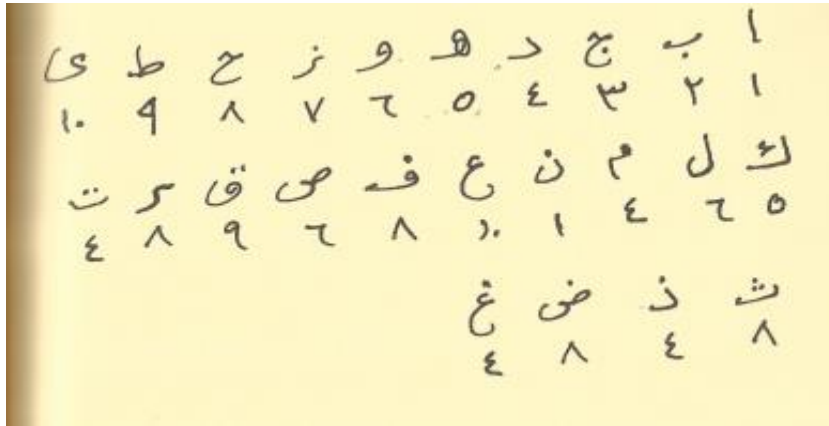 ا ب ج د ه و ز ح ط ى
١ ٢ ٣ ٤ ٥ ٦ ٧ ٨ ٩ ١٠
ك ل م ن ع ف ص ق ر ت
٥ ٦ ٤ ١ ١٠ ٨ ٦ ٩ ٨ ٤
ث ذ ض غ
٨ ٤ ٨ ٤